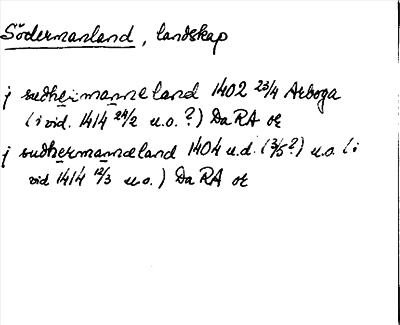 Södermanland, landskap
j sudheimanne land 1402 23/4 Arboga
(i vid. 1414 24/2 u.o.?) Da RA or
j sudhermanneland 1404 u.d. (3/5?) u.o. (i
vid 1414 12/3 u.o.) Da RA or